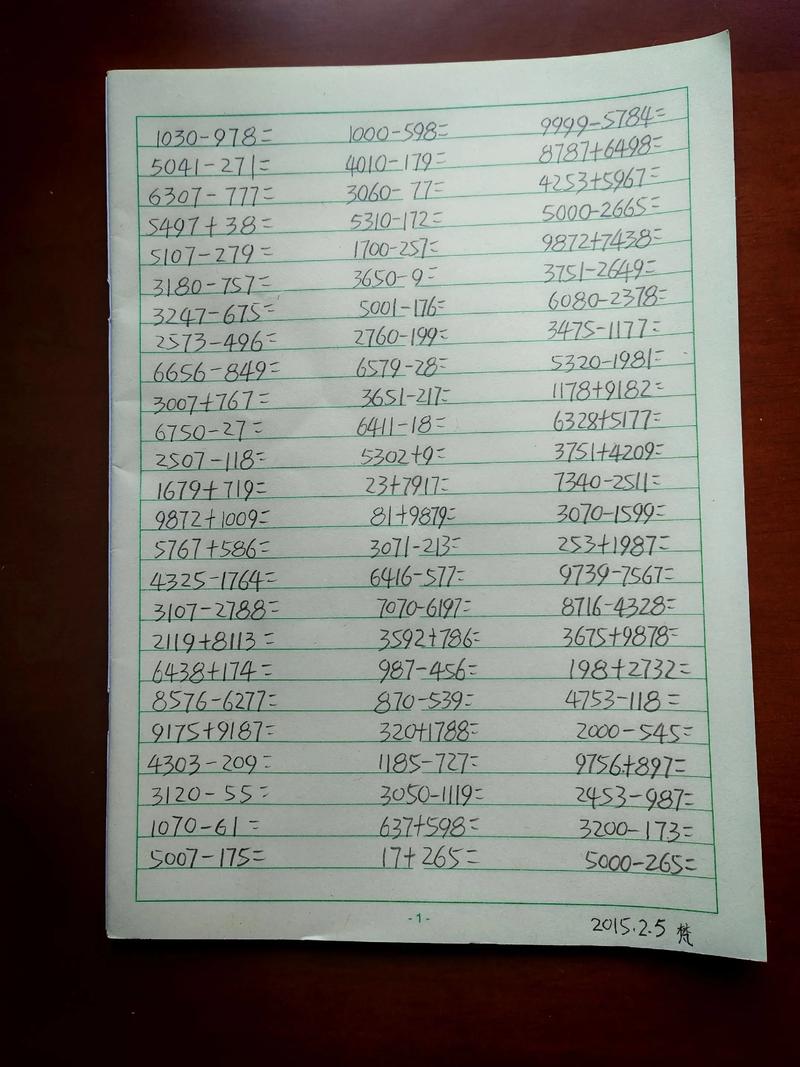 1030-978= 1000-598= 9999-5784=
5041-271= 4010-179= 8787+6498=
6307-777= 3060-77= 4253+5967=
5497+38= 5310-172= 5000-2665=
5107-279= 1700-257= 9872+7438=
3180-757= 3650-9= 3751-2649=
3247-675= 5001-176= 6080-2378=
2573-496= 2760-199= 3475-1177=
6656-849= 6579-28= 5320-1981=
3007+767= 3651-217= 1178+9182=
6750-27= 6411-18= 6328+5177=
2507-118= 5302+9= 3751+4209=
1679+719= 23+7917= 7340-2511=
9872+1009= 81+9879= 3070-1599=
5767+586= 3071-213= 253+1987=
4325-1764= 6416-577= 9739-7567=
3107-2788= 7070-6197= 8716-4328=
2119+8113= 3592+786= 3675+9878=
6438+174= 987-456= 198+2732=
8576-6277= 870-539= 4753-118=
9175+9187= 320+1788= 2000-545=
4303-209= 1185-727= 9756+897=
3120-55= 3050-1119= 2453-987=
1070-61= 637+598= 3200-173=
5007-175= 17+265= 5000-265=
-1-
2015.2.5 梵